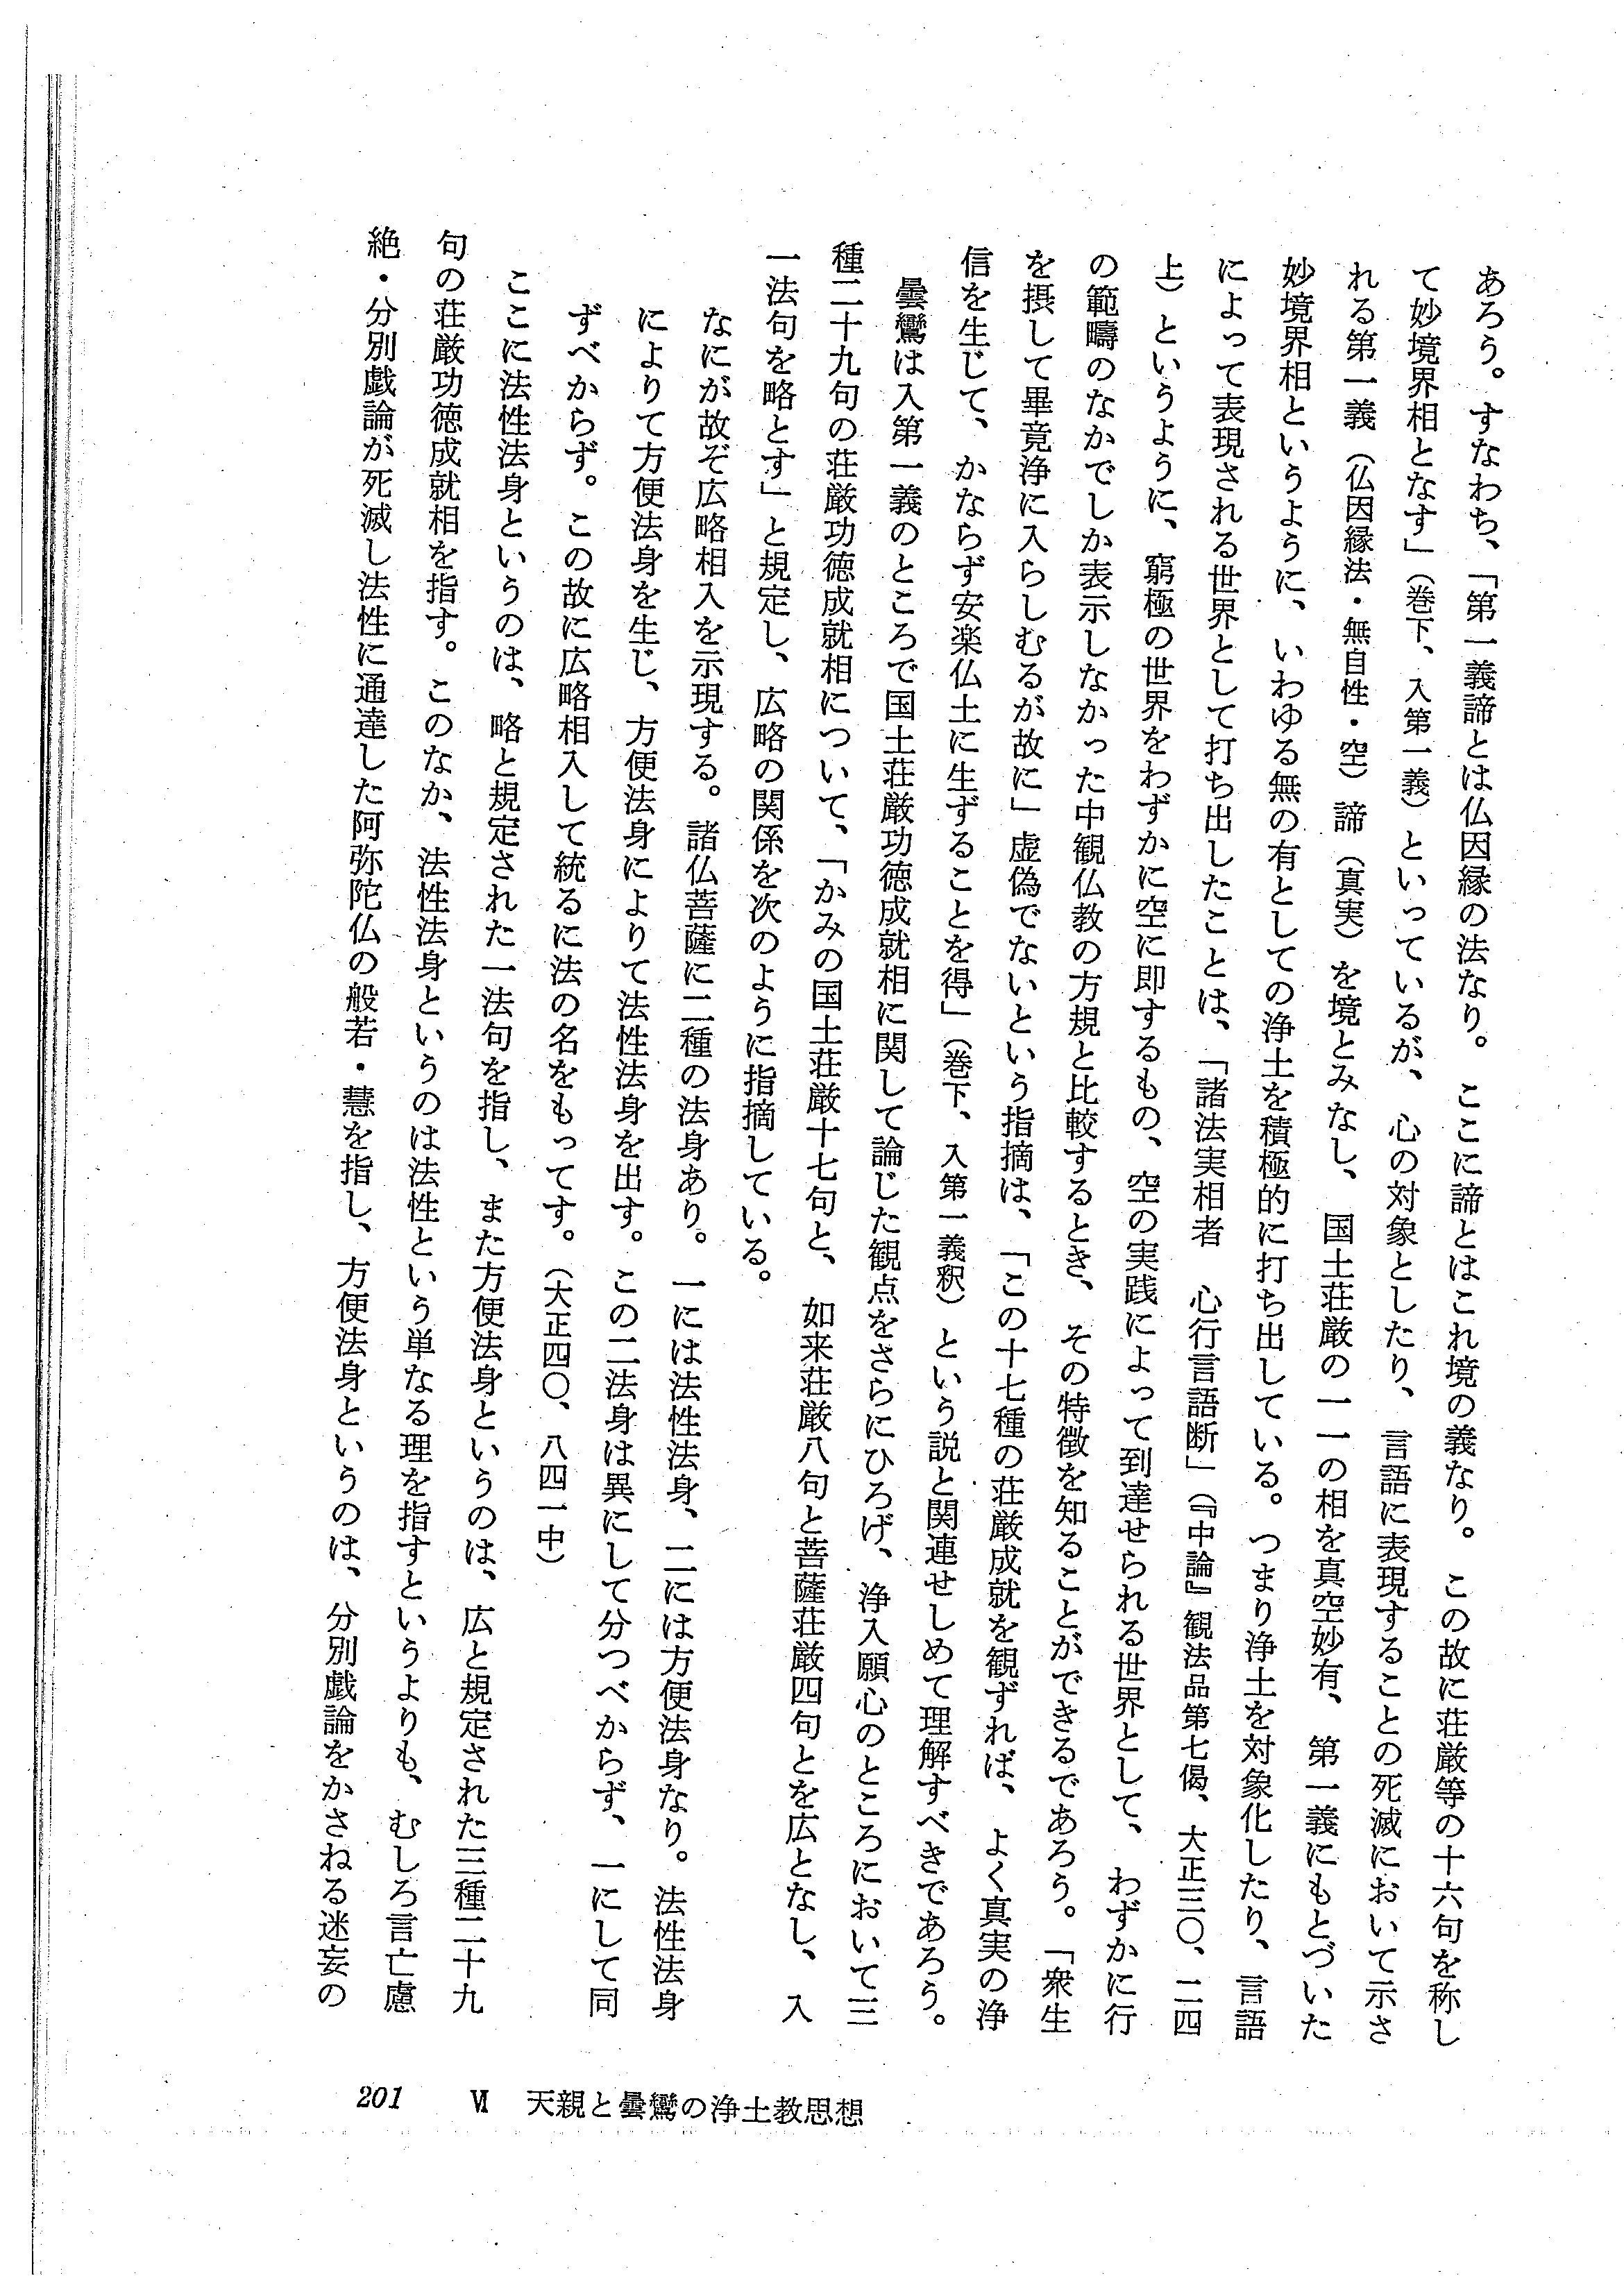 あろう。すなわち、「第一義諦とは仏因縁の法なり。ここに諦とはこれ境の義なり。この故に荘厳等の十六句を称し
て妙境界相となす」（巻下、入第一義）といっているが、心の対象としたり、言語に表現することの死滅において示さ
れる第一義（仏因縁法・無自性・空）諦（真実）を境とみなし、国土荘厳の一一の相を真空妙有、第一義にもとづいた
妙境界相というように、いわゆる無の有としての浄土を積極的に打ち出している。つまり浄土を対象化したり、言語
によって表現される世界として打ち出したことは、「諸法実相者　心行言語断」（『中論』観法品第七偈、大正三〇、二四
上）というように、窮極の世界をわずかに空に即するもの、空の実践によって到達せられる世界として、わずかに行
の範疇のなかでしか表示しなかった中観仏教の方規と比較するとき、その特徴を知ることができるであろう。「衆生
を摂して畢竟浄に入らしむるが故に」虚偽でないという指摘は、「この十七種の荘厳成就を観ずれば、よく真実の浄
信を生じて、かならず安楽仏土に生ずることを得」（巻下、入第一義釈）という説と関連せしめて理解すべきであろう。
曇鸞は入第一義のところで国土荘厳功徳成就相に関して論じた観点をさらにひろげ、浄入願心のところにおいて三
種二十九句の荘厳功徳成就相について、「かみの国土荘厳十七句と、如来荘厳八句と菩薩荘厳四句とを広となし、入
一法句を略とす」と規定し、広略の関係を次のように指摘している。
なにが故ぞ広略相入を示現する。諸仏菩薩に二種の法身あり。一には法性法身、二には方便法身なり。法性法身
によりて方便法身を生じ、方便法身によりて法性法身を出す。この二法身は異にして分つべからず、一にして同
ずべからず。この故に広略相入して統るに法の名をもってす。（大正四〇、八四一中）
ここに法性法身というのは、略と規定された一法句を指し、また方便法身というのは、広と規定された三種二十九
句の荘厳功徳成就相を指す。このなか、法性法身というのは法性という単なる理を指すというよりも、むしろ言亡慮
絶・分別戯論が死滅し法性に通達した阿弥陀仏の般若・慧を指し、方便法身というのは、分別戯論をかさねる迷妄の
201　Ⅵ　天親と曇鸞の浄土教思想